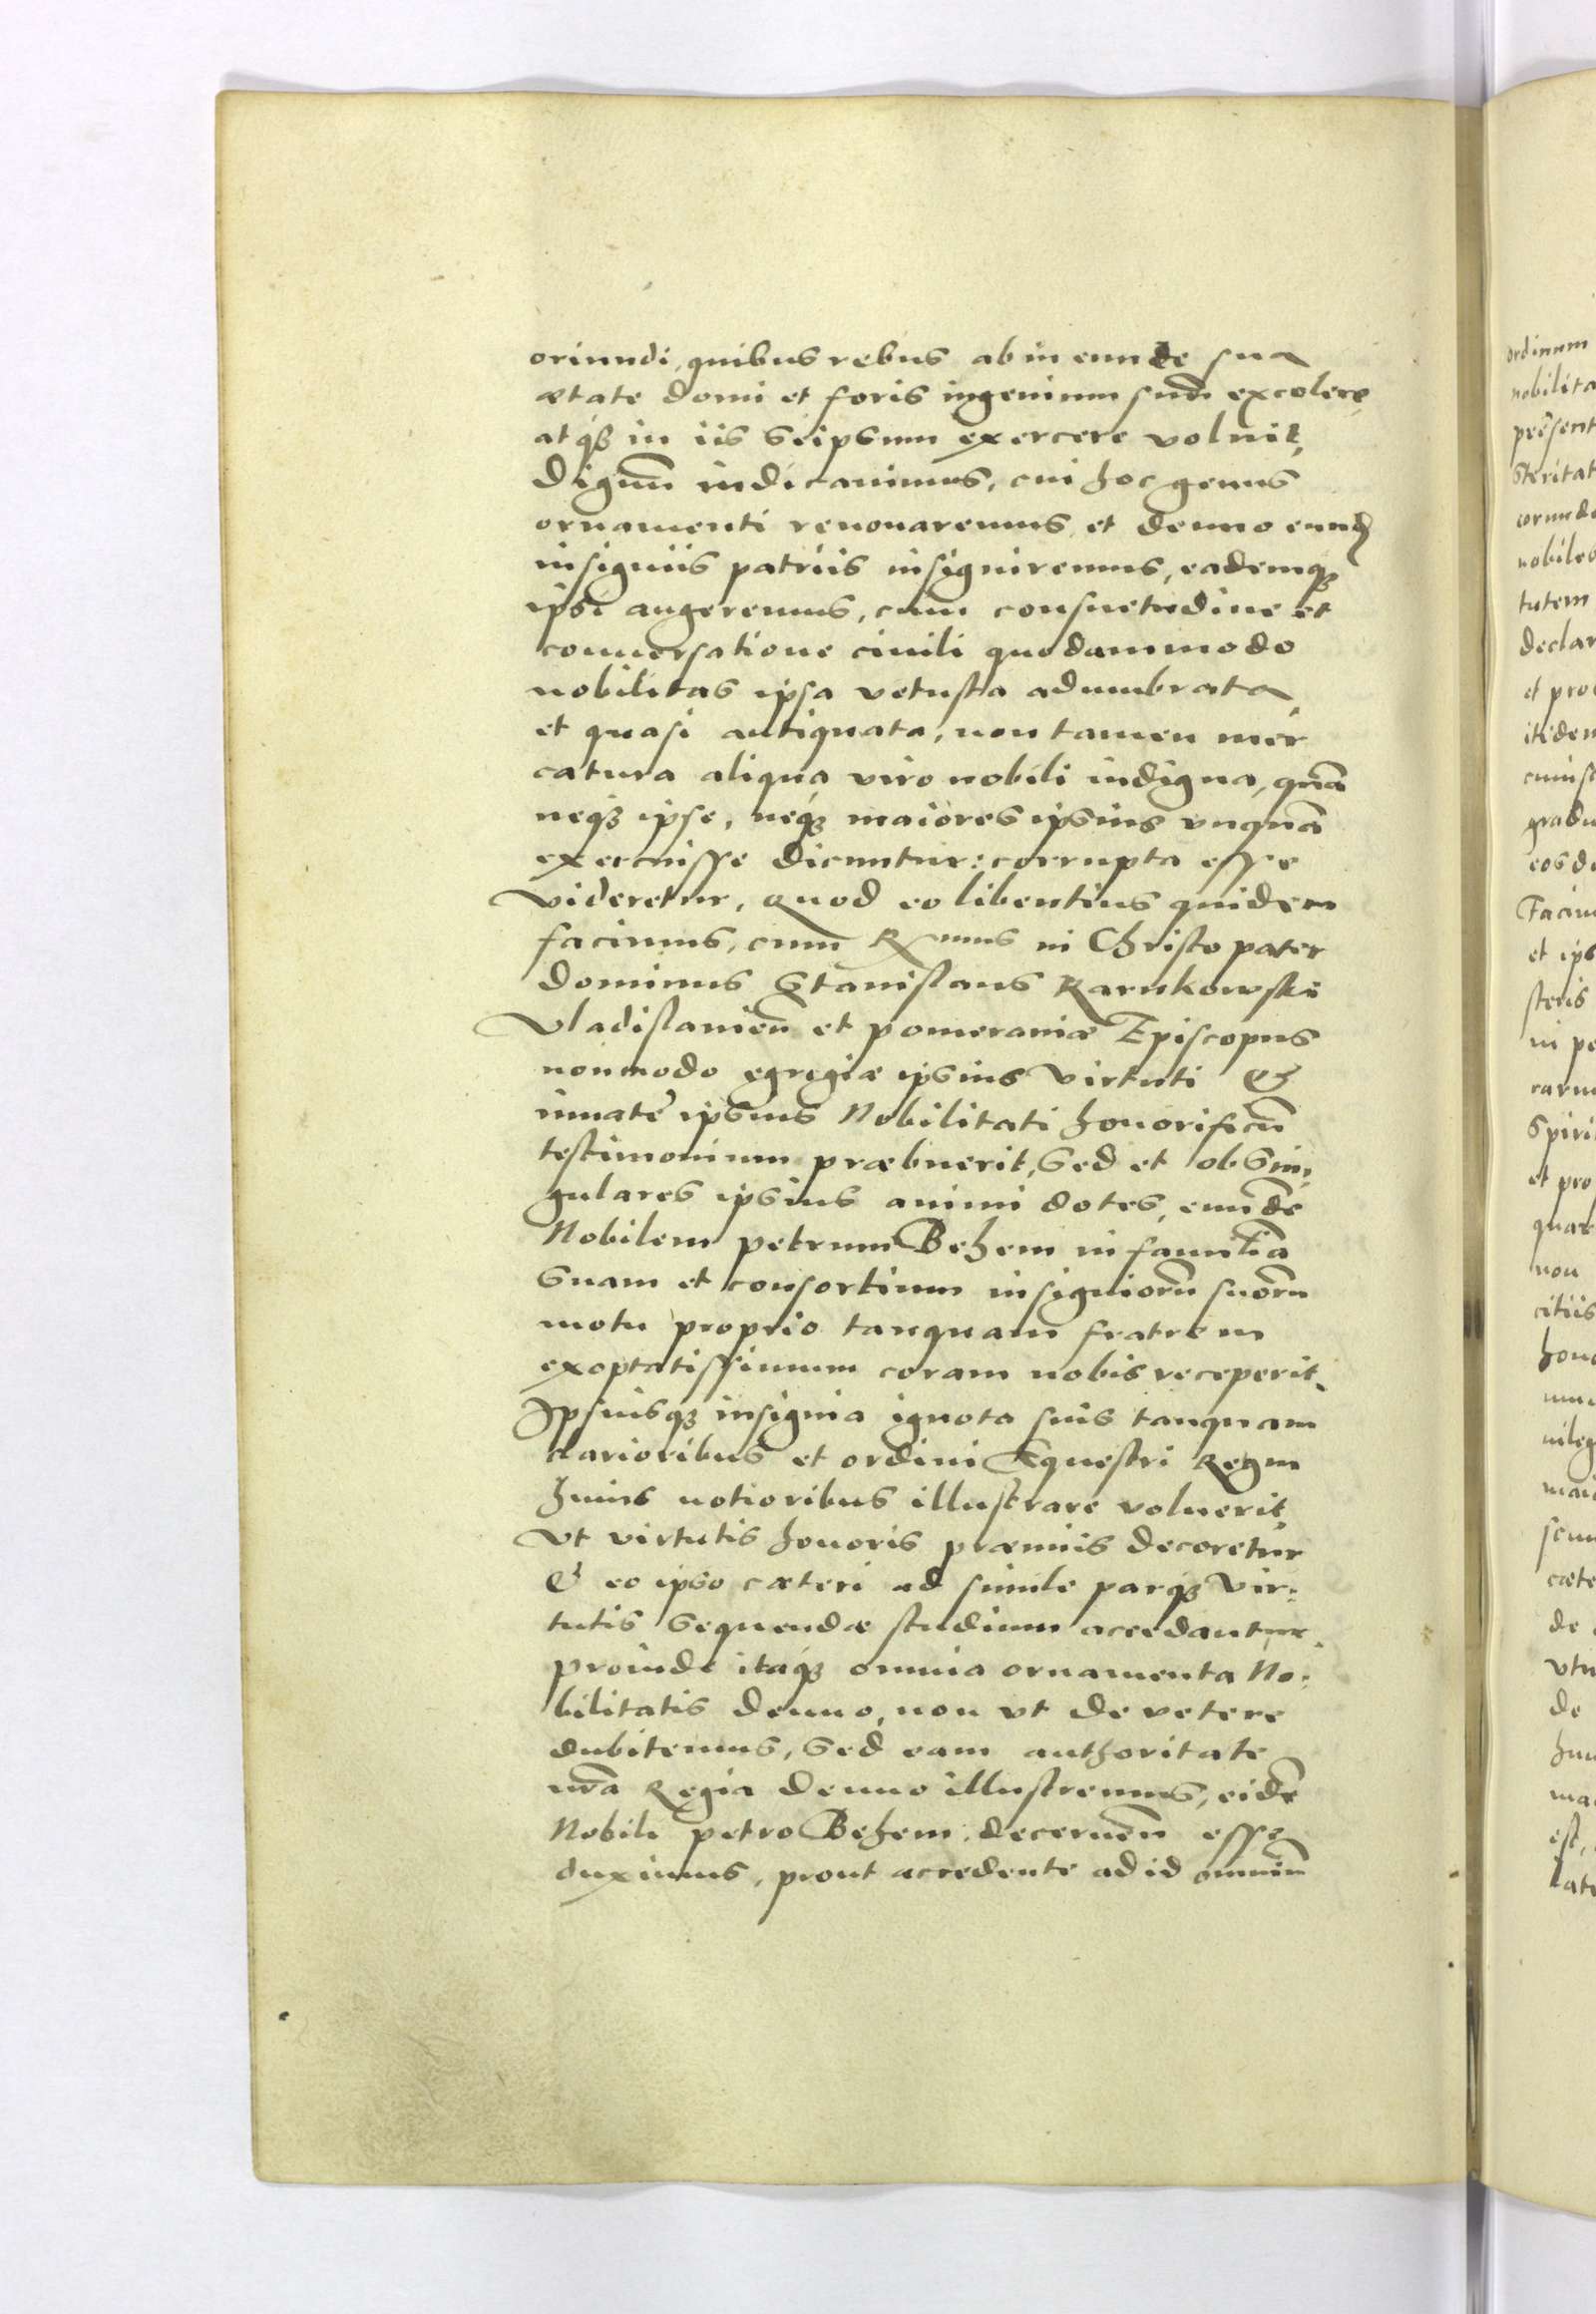 oriundi, quibus rebus ab in eunde sua
ætate domi et foris ingenium suũ excolere
atqꝫ in iis seipsum exercere voluit,
dignũ iudicauimus, cui hoc genus
ornamenti renouaremus et denuo eundẽ
insigniis patriis insigniremus, eademqꝫ
ipsi augeremus, cum consuetudine et
conuersatione ciuili quodammodo
nobilitas ipsa vetusta adumbrata
et quasi antiquata, non tamen mer
catura aliqua viro nobili indigna, quã
neqꝫ ipse, neqꝫ maiores ipsius vnquã
exercuisse dicuntur: corrupta esse
videretur, quod eo libentius quidem
facimus, cum Rmus in Christo pater
dominus Stanislaus Karnkowski
Vladislauieñ et pomeraniæ Episcopus
nonmodo egregiæ ipsius virtuti &
innatę ipsius Nobilitati honorificũ
testimonium præbuerit, sed et ob sin,
gulares ipsius animi dotes, eundẽ
Nobilem petrum Behem in familiã
suam et consortium insigniorũ suorũ
motu proprio tanquam fratrem
exoptatissimum coram nobis receperit,
Ipsiusqꝫ insignia ignota suis tanquam
clarioribus et ordini Equestri Regni
huius notioribus illustrare voluerit
Vt virtutis honoris præmiis decoretur
& eo ipso cæteri ad simile parqꝫ vir:
tutis sequendæ studium accedantur.
proinde itaqꝫ omnia ornamenta No:
bilitatis denuo, non vt de vetere
dubitemus, sed eam authoritate
nr̃a Regia denuo illustremus, eidẽ
Nobili petro Behem, decerneñ esse
duximus, prout accedente ad id omniũ
ordinum
nobilita
steritat
nobiles
tutem
declar
et pro
itidem
gradu
eos de
et ips
steris
in pe
Spiri
et pro
quae
non
citiis
cæte
de
vtu
de
est,